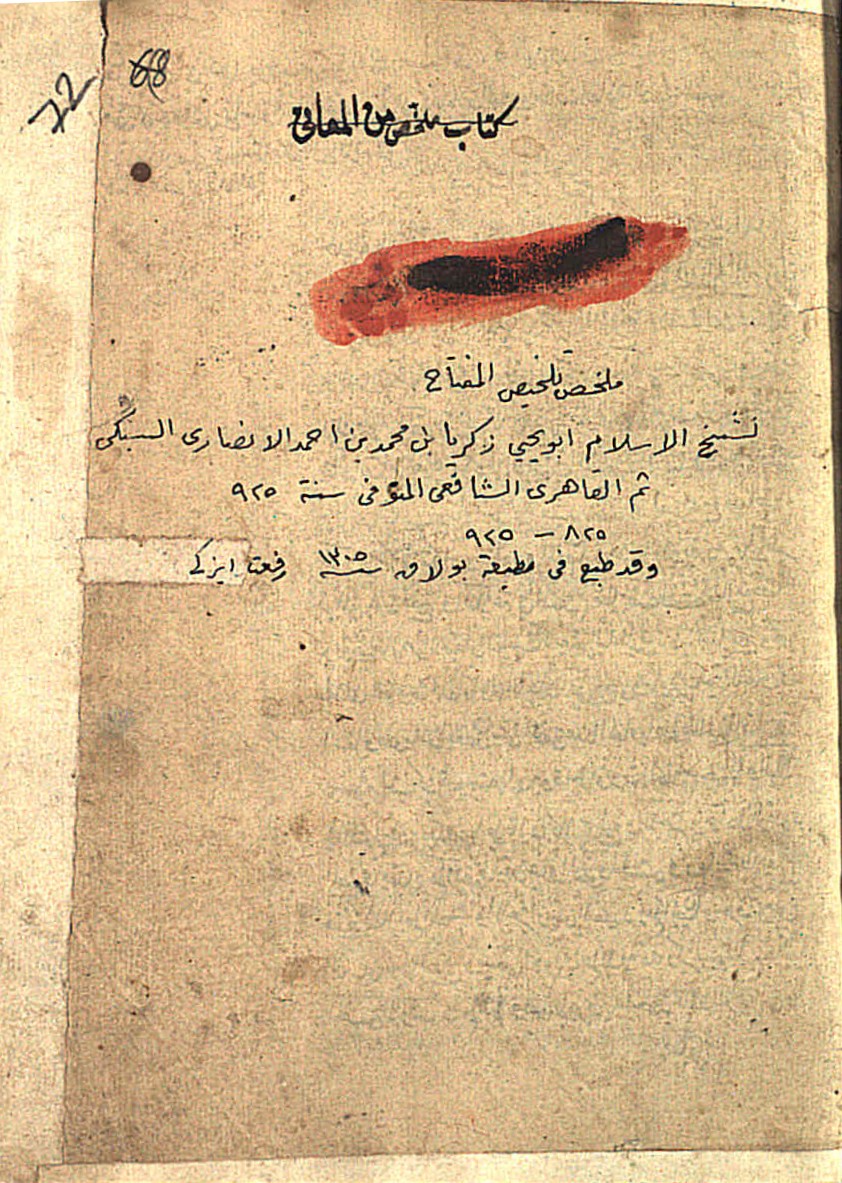 72
68
كتاب ملخص من المعانى
ملخص تلخيص المفتاح
لشيخ الاسلام ابويحيي زكريا بن محمد بن احمد الانصارى السبكى
ثم القاهرى الشافعى المتوفى سنة ٩٢٥
٨٢٥ – ٩٢٥
وقد طبع فى مطبعة بولاق سنه ١٣٠٥ رفعت